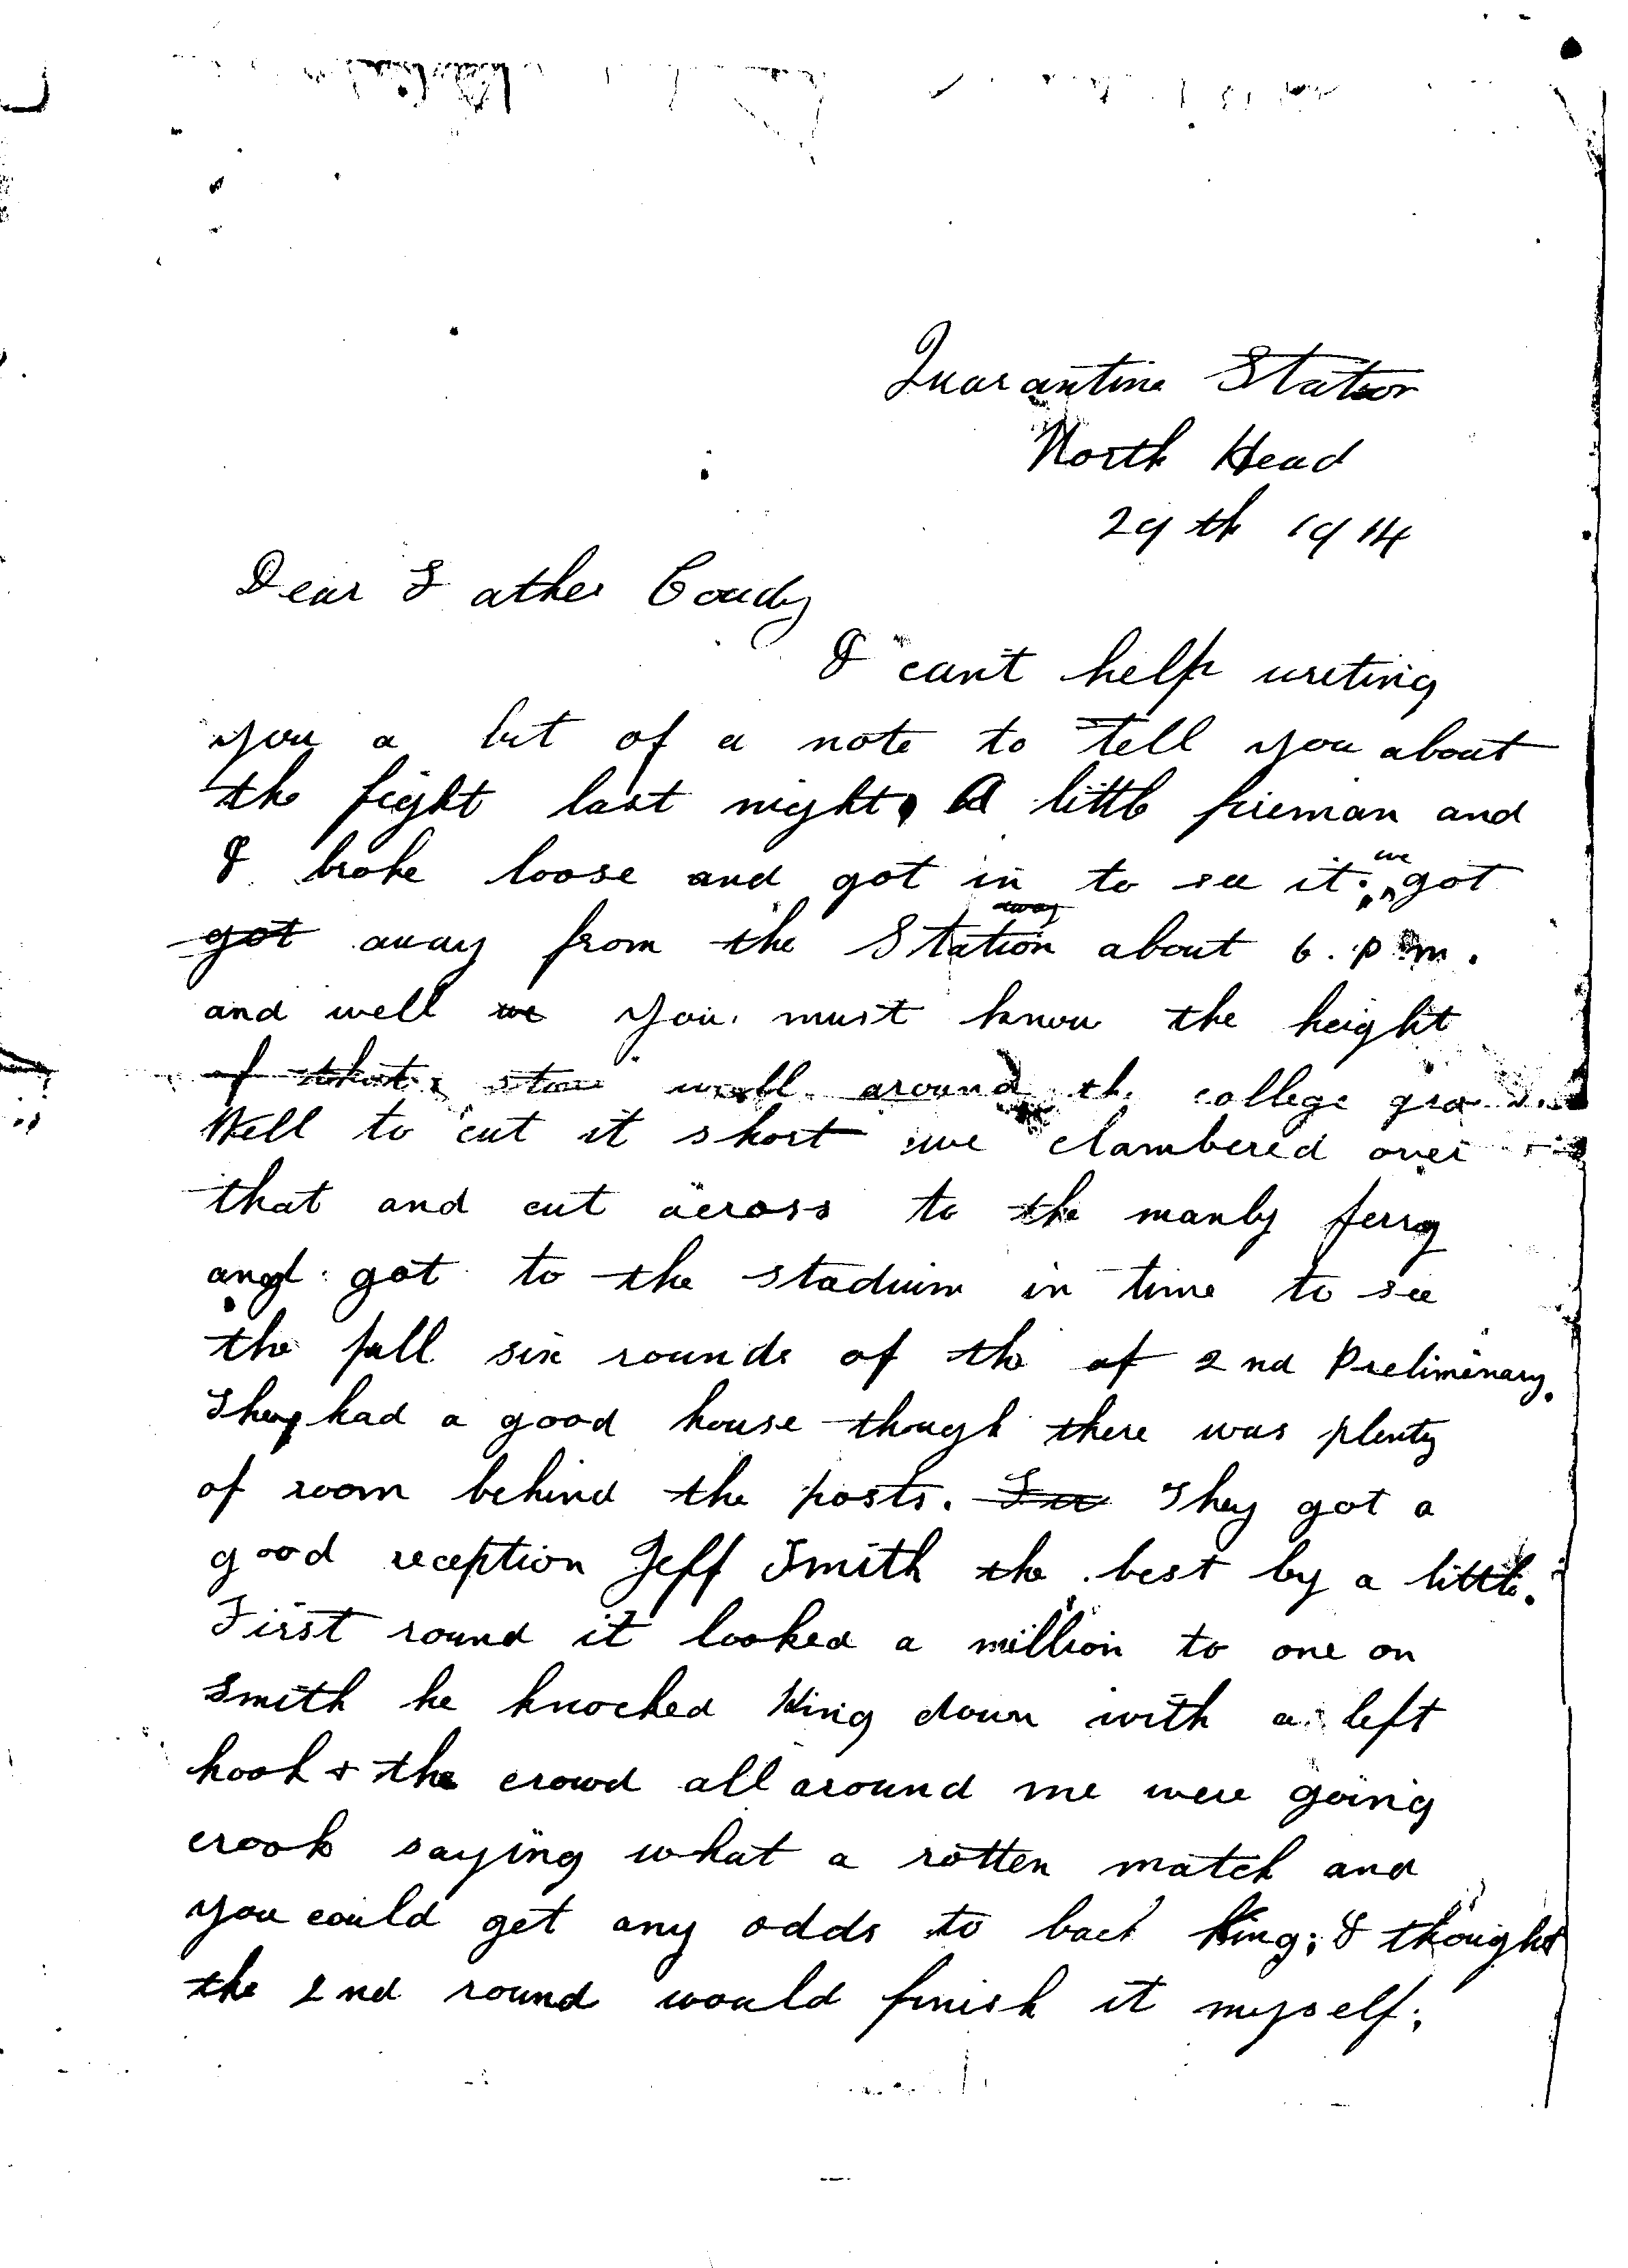 Quarantine Station
North Head
29th 1914
Dear Father Coady
I can't help writing
you a bit of a note to tell you about
the fight last night, A little fireman and
I broke loose and got in to see it. we got
got away from the Station about 6.p.m.
and well we you must know the height
of that stone wall around the college
Well to cut it short we clambered over
that and cut across to the manly ferry
and got to the stadium in time to see
the full six rounds of the of 2nd Preliminary.
They had a good house though there was plenty
of room behind the posts. They got a
good reception Jeff Smith the best by a little.
First round it looked a million to one on
Smith he knocked King down with a left
hook & the crowd all around me were going
crook saying what a rotten match and
you could get any odds to back King; I thought
the 2nd round would finish it myself;